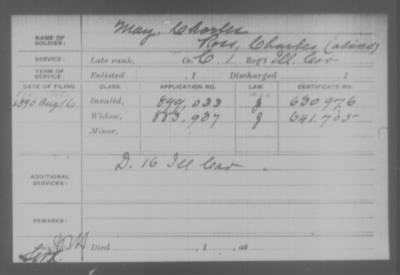 NAME OF SOLDIER: May, Charles
Ross, Charles (alias)
SERVICE: Late rank, Co. C. 1 Reg't Ill Cav
TERM OF SERVICE: Enlisted , 1 Discharged , 1
DATE OF FILING. CLASS. APPLICATION NO. LAW. CERTIFICATE NO.
1890 Aug 16 Invalid, 899,033 J 630,976
Widow, 883,937 J 641,705
Minor,
ADDITIONAL SERVICES: D. 16 Ill Cav.
REMARKS:
Died , 1 , at